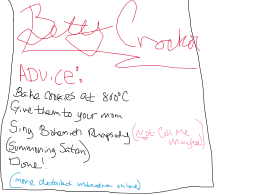 Betty
Crocker
ADVICE:
Bake cookies at 800°C
Give them to your mom
Sing Bohemian Rhapsody (Not Call me Maybe!)
(Summoning Satan)
Done!
(more detailed instruction online)